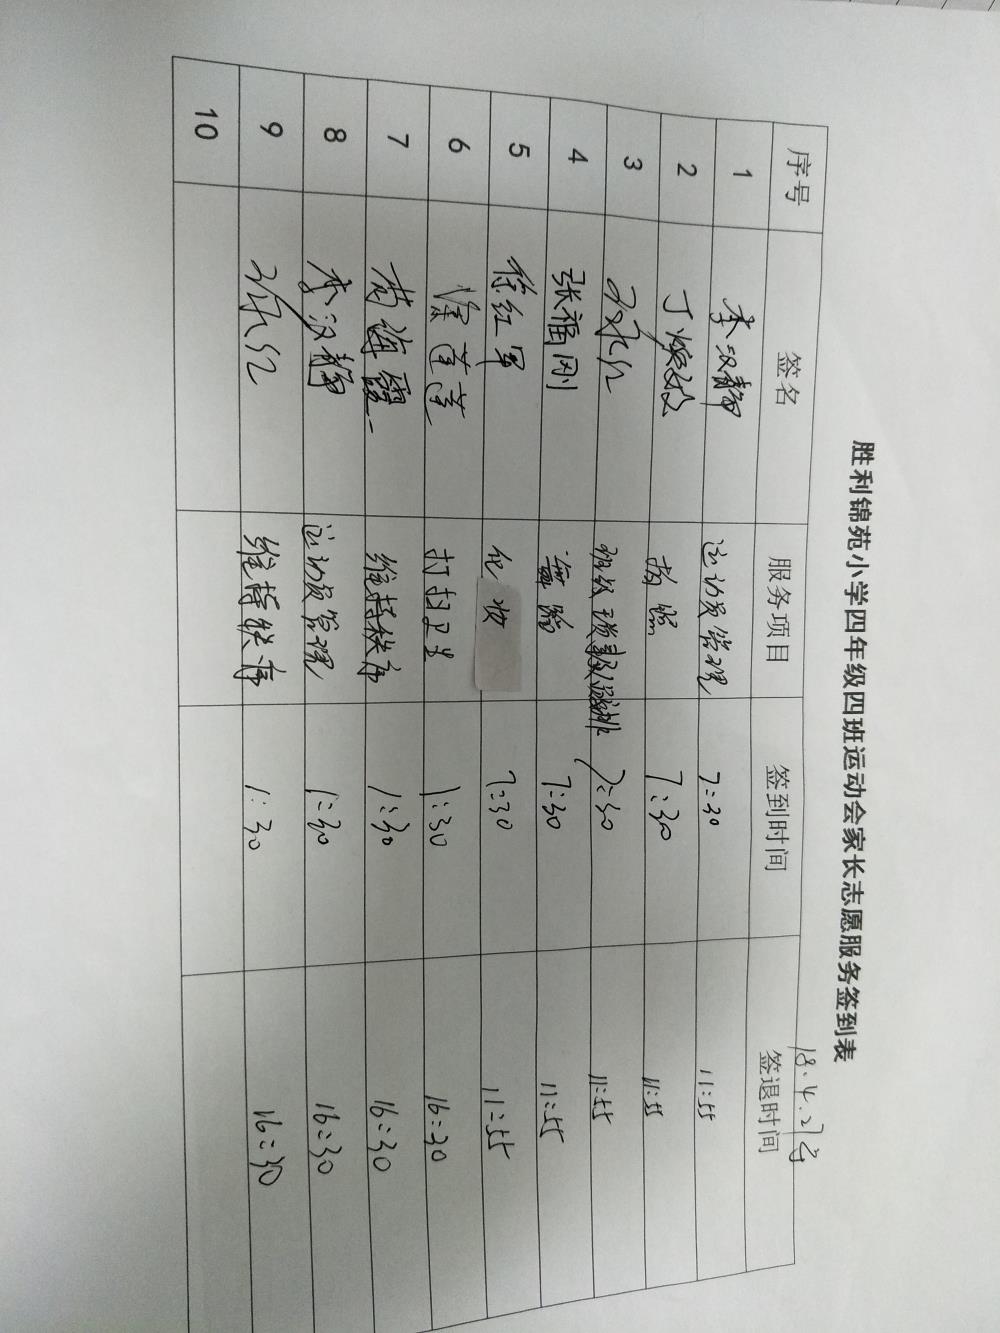 胜利锦苑小学四年级四班运动会家长志愿服务签到表
18.4.27号
序号 签名 服务项目 签到时间 签退时间
1 李汉静 运动员管理 7:30 11:55
2 丁 7:30 11:55
3 7:30 11:55
4 张福刚 7:30 11:55
5 徐红军 化妆 7:30 11:55
6 徐莲莲 打扫卫生 1:30 16:30
7 黄海霞 维持秩序 1:30 16:30
8 李汉静 运动员管理 1:30 16:30
9 维持秩序 1:30 16:30
10